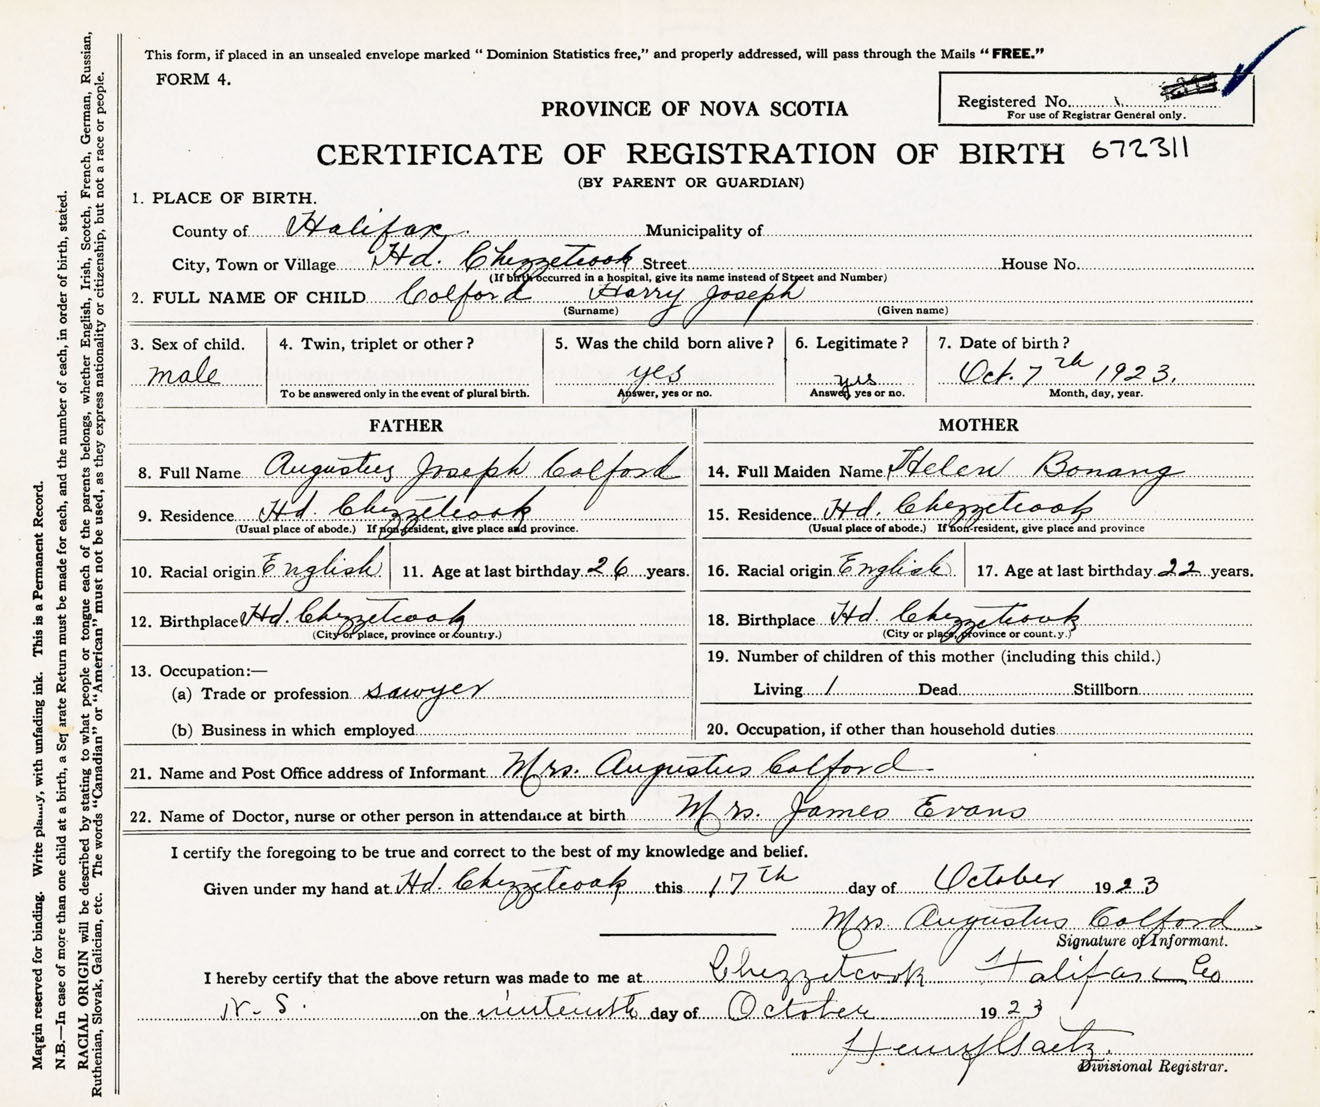 This form, if placed in an unsealed envelope marked "Dominion Statistics free," and properly addressed, will pass through the Mails "FREE."
FORM 4.
Registered No.
For use of Registrar General only.
PROVINCE OF NOVA SCOTIA
CERTIFICATE OF REGISTRATION OF BIRTH 672311
(BY PARENT OR GUARDIAN)
1. PLACE OF BIRTH.
County of Halifax. Municipality of
City, Town or Village Hd. Chezzetcook Street House No.
(If birth occurred in a hospital, give its name instead of Street and Number)
2. FULL NAME OF CHILD Colford Harry Joseph
(Surname) (Given name)
3. Sex of child. 4. Twin, triplet or other? 5. Was the child born alive? 6. Legitimate? 7. Date of birth?
male yes yes Oct. 7th 1923.
To be answered only in the event of plural birth. Answer, yes or no. Answer, yes or no. Month, day, year.
FATHER MOTHER
8. Full Name Augustus Joseph Colford 14. Full Maiden Name Helen Bonang
9. Residence Hd. Chezzetcook 15. Residence Hd. Chezzetcook
(Usual place of abode.) If non-resident, give place and province. (Usual place of abode.) If non-resident, give place and province
10. Racial origin English 11. Age at last birthday 26 years. 16. Racial origin English 17. Age at last birthday 22 years.
12. Birthplace Hd. Chezzetcook 18. Birthplace Hd. Chezzetcook
(City or place, province or country.) (City or place, province or count.y.)
13. Occupation:— 19. Number of children of this mother (including this child.)
(a) Trade or profession sawyer Living 1 Dead Stillborn
(b) Business in which employed 20. Occupation, if other than household duties
21. Name and Post Office address of Informant Mrs. Augustus Colford
22. Name of Doctor, nurse or other person in attendance at birth Mrs. James Evans
I certify the foregoing to be true and correct to the best of my knowledge and belief.
Given under my hand at Hd. Chezzetcook this 17th day of October 1923
Mrs Augustus Colford
Signature of Informant.
I hereby certify that the above return was made to me at Chezzetcook Halifax Co
N. S. on the nineteenth day of October 1923
Henry Gaetz.
Divisional Registrar.
Margin reserved for binding. Write plainly, with unfading ink. This is a Permanent Record.
N.B.—In case of more than one child at a birth, a Separate Return must be made for each, and the number of each, in order of birth, stated.
RACIAL ORIGIN will be described by stating to what people or tongue each of the parents belongs, whether English, Irish, Scotch, French, German, Russian,
Ruthenian, Slovak, Galician, etc. The words "Canadian" or "American" must not be used, as they express nationality or citizenship, but not a race or people.